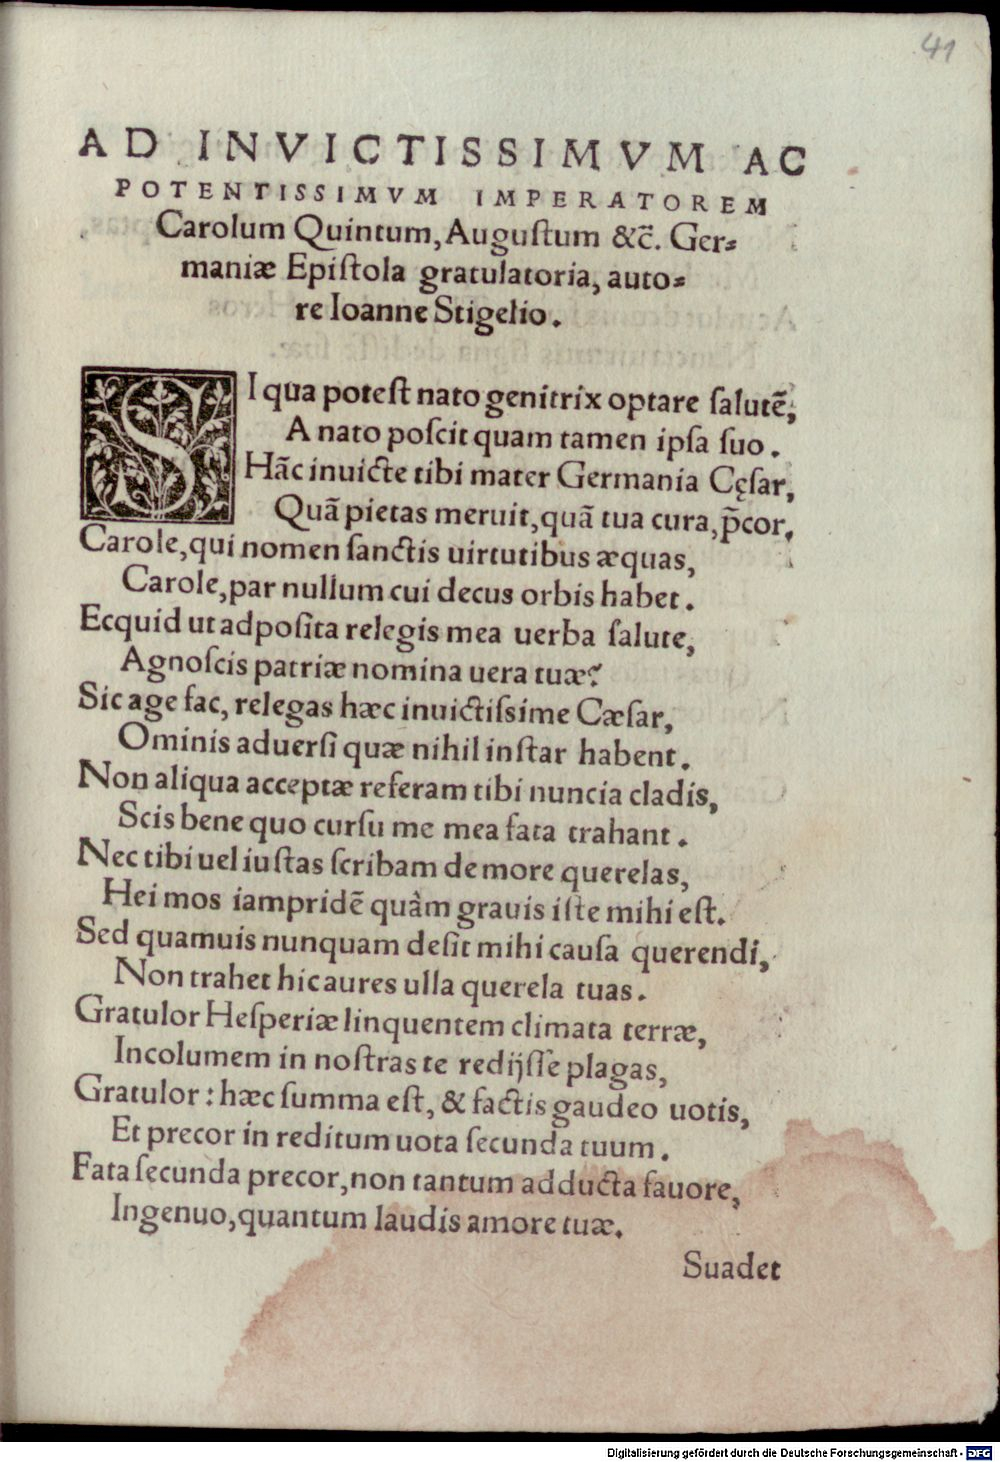 41
AD INVICTISSIMVM AC
POTENTISSIMVM IMPERATOREM
Carolum Quintum, Auguſtum &c̄. Ger⸗
maniæ Epiſtola gratulatoria, auto⸗
re Ioanne Stigelio.
SI qua poteſt nato genitrix optare ſalutē,
A nato poſcit quam tamen ipſa ſuo.
Hāc inuicte tibi mater Germania Cęſar,
Quā pietas meruit, quā tua cura, p̄cor,
Carole, qui nomen ſanctis uirtutibus æquas,
Carole, par nullum cui decus orbis habet.
Ecquid ut adpoſita relegis mea uerba ſalute,
Agnoſcis patriæ nomina uera tuæ?
Sic age fac, relegas hæc inuictiſsime Cæſar,
Ominis aduerſi quæ nihil inſtar habent.
Non aliqua acceptæ referam tibi nuncia cladis,
Scis bene quo curſu me mea fata trahant.
Nec tibi uel iuſtas ſcribam de more querelas,
Hei mos iampridē quàm grauis iſte mihi eſt.
Sed quamuis nunquam deſit mihi cauſa querendi,
Non trahet hic aures ulla querela tuas.
Gratulor Heſperiæ linquentem climata terræ,
Incolumem in noſtras te redijſſe plagas,
Gratulor: hæc ſumma eſt, & factis gaudeo uotis,
Et precor in reditum uota ſecunda tuum.
Fata ſecunda precor, non tantum adducta fauore,
Ingenuo, quantum laudis amore tuæ.
Suadet
Digitalisierung gefördert durch die Deutsche Forschungsgemeinschaft - DFG